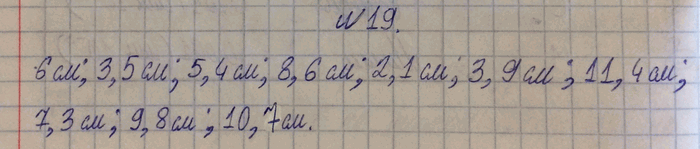 №19.
6 см; 3,5 см; 5,4 см; 8,6 см; 2,1 см; 3,9 см; 11,4 см;
7,3 см; 9,8 см; 10,7 см.